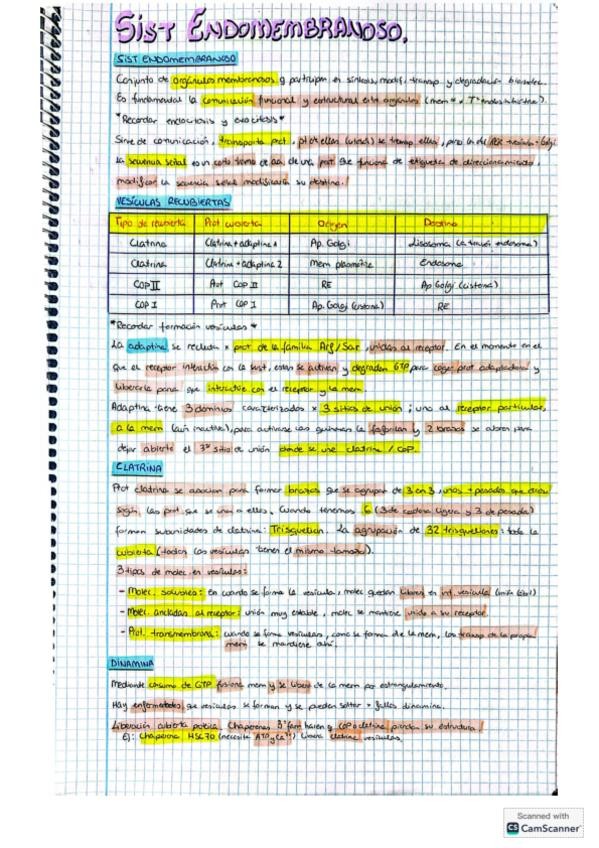 SIST ENDOMEMBRANOSO.
SIST ENDOMEMBRANOSO
Conjunto de orgánulos membranosos q participan en síntesis, modif, transp y degradación
Es fundamental la comunicación funcional y estructural entre orgánulos
*Recordar endocitosis y exocitosis*
Sirve de comunicación, transporta prot,
La secuencia señal es un corto tramo de aa, de una prot que funciona de etiqueta de direccionamiento,
modificar la secuencia señal modificaría su destino!
VESÍCULAS RECUBIERTAS
Tipo de cubierta Prot cubierta Origen Destino
Clatrina Clatrina + adaptina 1 Ap. Golgi Lisosoma (a través endosoma)
Clatrina Clatrina + adaptina 2 Mem plasmática Endosoma
COP II Prot COP II RE Ap Golgi (cisterna)
COP I Prot COP I Ap. Golgi (cisterna) RE
*Recordar formación vesículas*
La adaptina se recluta x prot de la familia Arf/Sar, unidas al receptor. En el momento en el
que el receptor interactúa con la sust, estas se activan y degradan GTP para coger prot adaptadora y
liberarla para que interactúe con el receptor y la mem.
Adaptina tiene 3 dominios caracterizados x 3 sitios de unión; uno al receptor particular,
a la mem (aún inactiva), para activarse las quinasas la fosforilan y 2 brazos se abren para
dejar abierto el 3er sitio de unión donde se une clatrina / COP.
CLATRINA
Prot clatrina se asocian para formar brazos que se agrupan de 3 en 3, unos + pesados que otros
según las prot que se unan a ellos. Cuando tenemos 6 (3 de cadena ligera y 3 de pesada)
forman subunidades de clatrina: Trisquelion. La agrupación de 32 trisqueliones: toda la
cubierta (todas las vesículas tienen el mismo tamaño).
3 tipos de molec en vesículas:
- Molec. solubles: en cuando se forma la vesícula, molec quedan libres en int. vesícula
- Molec. ancladas al receptor: unión muy estable, molec se mantiene unida a su receptor.
- Prot. transmembrana: cuando se forma vesículas, como se forma de la mem, las transp de la propia
mem se mantiene ahí.
DINAMINA
Mediante consumo de GTP fusiona mem y se libera de la mem por estrangulamiento.
Hay enfermedades que vesículas se forman y no se pueden soltar x fallos dinamina.
Liberación cubierta proteica. Chaperonas hacen q COP o clatrina pierdan su estructura!
Ej: Chaperona HSC70 (necesita ATP y Ca²⁺) libera clatrina vesículas.
Scanned with
CS CamScanner